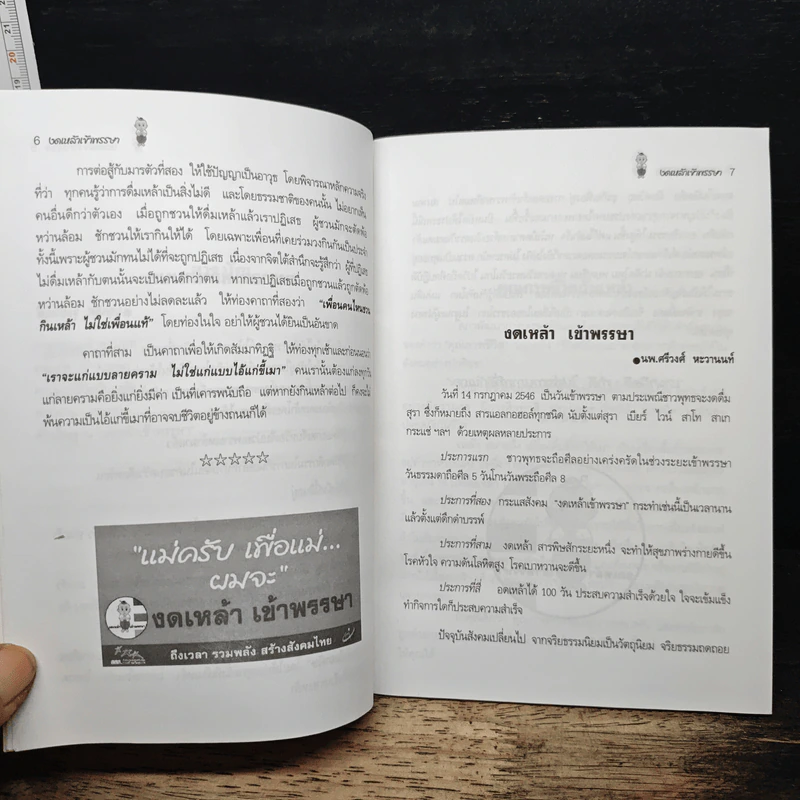 6 งดเหล้าเข้าพรรษา
การต่อสู้กับมารตัวที่สอง ให้ใช้ปัญญาเป็นอาวุธ โดยพิจารณาหลักความจริง
ที่ว่า ทุกคนรู้ว่าการดื่มเหล้าเป็นสิ่งไม่ดี และโดยธรรมชาติของคนนั้น ไม่อยากเห็น
คนอื่นดีกว่าตัวเอง เมื่อถูกชวนให้ดื่มเหล้าแล้วเราปฏิเสธ ผู้ชวนมักจะตัดพ้อ
หว่านล้อม ชักชวนให้เรากินให้ได้ โดยเฉพาะเพื่อนที่เคยร่วมวงกินกันเป็นประจำ
ทั้งนี้เพราะผู้ชวนมักทนไม่ได้ที่จะถูกปฏิเสธ เนื่องจากจิตใต้สำนึกจะรู้สึกว่า ผู้ที่ปฏิเสธ
ไม่ดื่มเหล้ากับตนนั้นจะเป็นคนดีกว่าตน หากเราปฏิเสธเมื่อถูกชวนแล้วถูกตัดพ้อ
หว่านล้อม ชักชวนอย่างไม่ลดละแล้ว ให้ท่องคาถาที่สองว่า "เพื่อนคนไหนชวน
กินเหล้า ไม่ใช่เพื่อนแท้" โดยท่องในใจ อย่าให้ผู้ชวนได้ยินเป็นอันขาด
คาถาที่สาม เป็นคาถาเพื่อให้เกิดสัมมาทิฏฐิ ให้ท่องทุกเช้าและก่อนนอนว่า
"เราจะแก่แบบลายคราม ไม่ใช่แก่แบบไอ้แก่ขี้เมา" คนเรานั้นต้องแก่ลงทุกวัน
แก่ลายความคือยิ่งแก่ยิ่งมีค่า เป็นที่เคารพนับถือ แต่หากยังกินเหล้าต่อไป ก็คงจะไม่
พ้นความเป็นไอ้แก่ขี้เมาที่อาจจบชีวิตอยู่ข้างถนนก็ได้
☆☆☆☆☆
"แม่ครับ เพื่อแม่...
ผมจะ"
งดเหล้า เข้าพรรษา
ถึงเวลา รวมพลัง สร้างสังคมไทย
งดเหล้าเข้าพรรษา 7
งดเหล้า เข้าพรรษา
●นพ.ศรีวงศ์ หะวานนท์
วันที่ 14 กรกฎาคม 2546 เป็นวันเข้าพรรษา ตามประเพณีชาวพุทธจะงดดื่ม
สุรา ซึ่งก็หมายถึง สารแอลกอฮอล์ทุกชนิด นับตั้งแต่สุรา เบียร์ ไวน์ สาโท สาเก
กระแช่ ฯลฯ ด้วยเหตุผลหลายประการ
ประการแรก ชาวพุทธจะถือศีลอย่างเคร่งครัดในช่วงระยะเข้าพรรษา
วันธรรมดาถือศีล 5 วันโกนวันพระถือศีล 8
ประการที่สอง กระแสสังคม "งดเหล้าเข้าพรรษา" กระทำเช่นนี้เป็นเวลานาน
แล้วตั้งแต่ดึกดำบรรพ์
ประการที่สาม งดเหล้า สารพิษสักระยะหนึ่ง จะทำให้สุขภาพร่างกายดีขึ้น
โรคหัวใจ ความดันโลหิตสูง โรคเบาหวานจะดีขึ้น
ประการที่สี่ อดเหล้าได้ 100 วัน ประสบความสำเร็จด้วยใจ ใจจะเข้มแข็ง
ทำกิจการใดก็ประสบความสำเร็จ
ปัจจุบันสังคมเปลี่ยนไป จากจริยธรรมนิยมเป็นวัตถุนิยม จริยธรรมถดถอย